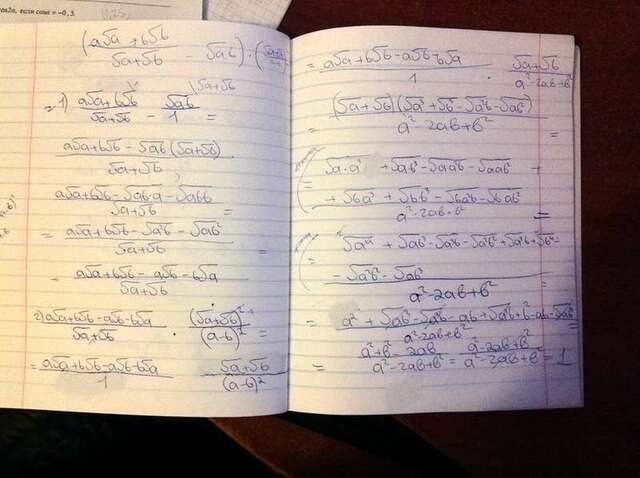 cos2α, если cosα = -0,3.
(a√a + b√b / √a+√b - √ab) : (√a+√b / a-b)²
= 1) a√a+b√b / √a+√b - √ab / 1 =
a√a+b√b - √ab(√a+√b) / √a+√b =
a√a+b√b - √ab·a - √abb / √a+√b =
= a√a+b√b - √a²b - √ab² / √a+√b =
= a√a+b√b - a√b - b√a / √a+√b
2) a√a+b√b-a√b-b√a / √a+√b · (√a+√b)² / (a-b)² =
= a√a+b√b-a√b-b√a / 1 · √a+√b / (a-b)²
= a√a+b√b-a√b-b√a / 1 · √a+√b / a²-2ab+b²
= (√a+√b)(√a³+√b³-√a²b-√ab²) / a²-2ab+b² =
√a·a³ + √ab³ - √aa²b - √aab² +
+ √ba³ + √bb³ - √ba²b - √bab² / a²-2ab+b² =
= √a⁴ + √ab³ - √a³b - √a²b² + √a³b + √b⁴ -
- √a²b² - √ab³ / a²-2ab+b²
= a² + √ab³ - √a³b - ab + √a³b + b² - ab - √ab³ / a²-2ab+b² =
= a²+b²-2ab / a²-2ab+b² = a²-2ab+b² / a²-2ab+b² = 1